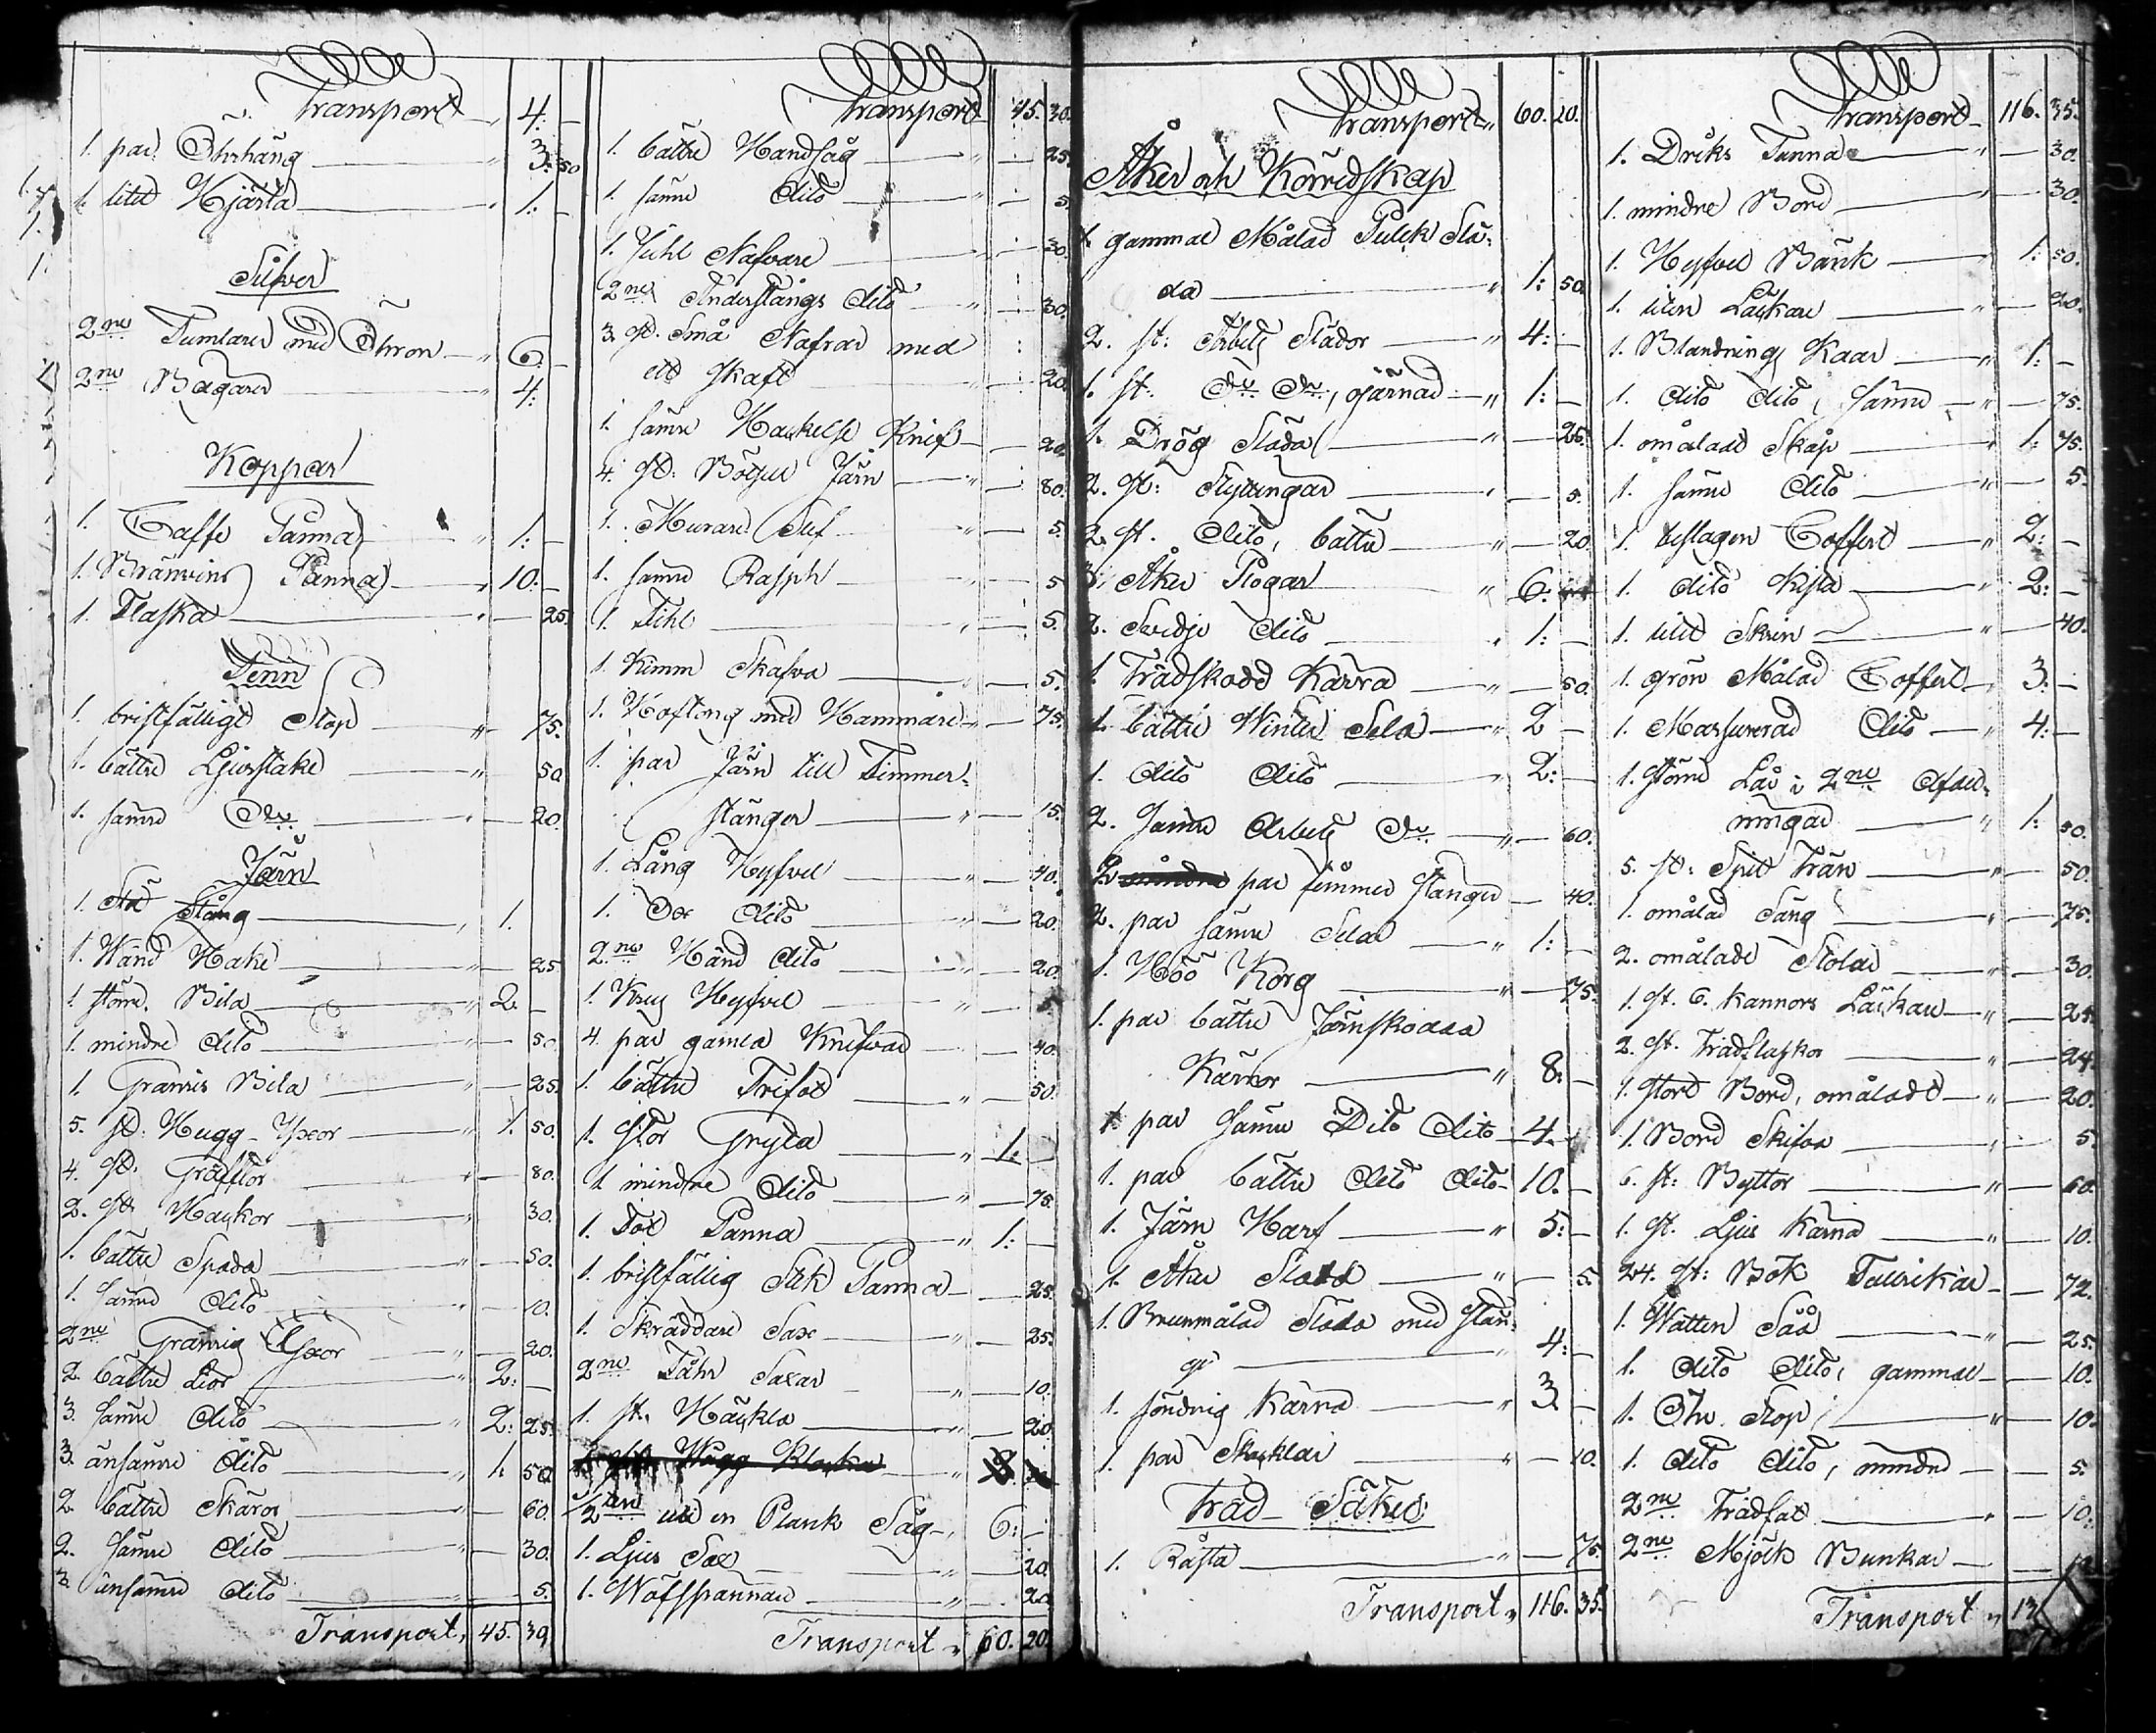 Transport 4. —
1. par. Öhrhäng " 3. 50
1. litet Hjärta " 1. —
Silfver
2ne Tumlare med Öhron " 6. —
2ne Bägare " 4.
Koppar
1. Caffe Panna " 1. —
1. Bränvins Panna " 10. —
1. Flaska " — 25.
Tenn
1. bristfälligt Stop " — 75.
1. bättre Ljusstake " — 50.
1. sämre Do " — 20.
Järn
1. Stång " 1.
1. Wänd Hake " — 25.
1. större Bila " 2. —
1. mindre dito " — 50.
1. Bila " — 25.
5. st: Hugg-Yxor " 1. 50.
4. st. Gräftor " — 80.
2. st. Hackor " — 30.
1. bättre Spada " — 50.
1. sämre dito " — 10.
2ne Yxor " — 20.
2. bättre Liar " 2: —
3. sämre dito " 2: 25.
3. änsämre dito " 1. 50.
2. bättre Skäror " — 60.
2. sämre dito " — 30.
3. änsämre dito " — 5.
Transport " 45. 30
Transport 45. 30.
1. bättre Handsåg " — 25.
1. sämre dito " — 5.
1. Nafvare " — 30.
2ne dito " — 30.
3. st. Små Nafrar med
ett skaft " — 20.
1. sämre Hackelse Knif — 20.
4. st: Böljel Järn " — 80.
1. Murare Slef " — 5.
1. sämre Rasph " — 5
1. Fihl " — 5.
1. Kimm Skafva " — 5.
1. Hoftong med Hammare " — 75.
1. par Järn till Timmer-
stänger " — 15.
1. Lång Hyfvel " — 40.
1. dito " — 20.
2ne Hand dito " — 20.
1. Hyfvel " — 5
4. par gamla Knifvar — 40.
1. bättre Trifot " — 50.
1. stor Gryta " 1. —
1. mindre dito " — 75.
1. Panna " 1: —
1. bristfällig Stek Panna — 25.
1. Skräddare Sax " — 25.
2ne Fåhr Saxar " — 10.
1. st. Häckla " — 20.
1/2ten uti en Plank Såg " 6: —
1. Ljus Sax — 20.
1. Wåfspannar " — 20.
Transport " 60. 20.
Transport " 60. 20.
Åker och Körredskap
1. gammal Målad Pulck Slä-
da " 1: 50.
2. st: Arbets Slädor " 4: —
1. st. Do Do, ojärnad " 1: —
1. Drög Släda " — 25.
2. st: Styttingar " — 5.
2. st. dito, bättre " — 20.
3. Åker Plogar " 6:
2. Svedje dito " 1: —
1. Trädskodd Kärra " — 50.
1. bättre Winter Sela " 2 —
1. dito dito " 2: —
2. sämre Arbets Do " — 60.
2 par timmer stänger — 40.
2. par sämre Selar " 1: —
1. Höö Korg " — 75.
1. par bättre Järnskodda
Kärror " 8. —
1. par sämre Dito dito 4. —
1. par bättre dito dito 10. —
1. Järn Harf " 5: —
1. Åker Sladd " — 5.
1. Brunmålad Släda med stän-
ger " 4: —
1. söndrig Kärra " 3 —
1. par Skacklar " — 10.
Träd Saker
1. Råsta " — 75.
Transport " 116. 35.
Transport 116. 35.
1. Driks Tunna " — 30.
1. mindre Bord " — 30.
1. Hyfvel Bänk " 1: 50.
1. liten Läckare " — 20.
1. Blandnings Kaar " 1: —
1. dito dito, sämre " — 75.
1. omåladt Skåp " 1: 75.
1. sämre dito " — 5.
1. beslagen Coffert " 2: —
1. dito Kista " 2: —
1. litet Skrin " — 40.
1. grön Målad Coffert " 3: —
1. Marhurerad dito " 4: —
1. större Lår i 2ne afdel-
ningar " 1: 50.
5. st: Spilt Trän " — 50.
1. omålad Säng " — 75.
2. omålade Stolar " — 30.
1. st. 6. Kannors Läckare " — 25.
2. st. Trädflaskor " — 24.
1. stort Bord, omåladt " — 20.
1. Bord Skifva " — 5.
6. st: Byttor " — 60.
1. st. Ljus Kärna " — 10.
24. st: Bok Tallrikar — 72.
1. Watten Såå " — 25.
1. dito dito, gammal — 10.
1. Stop " — 10.
1. dito dito, mindre — 5.
2ne Trädfat " — 10.
2ne Mjölk Bunkar — 12
Transport " 13